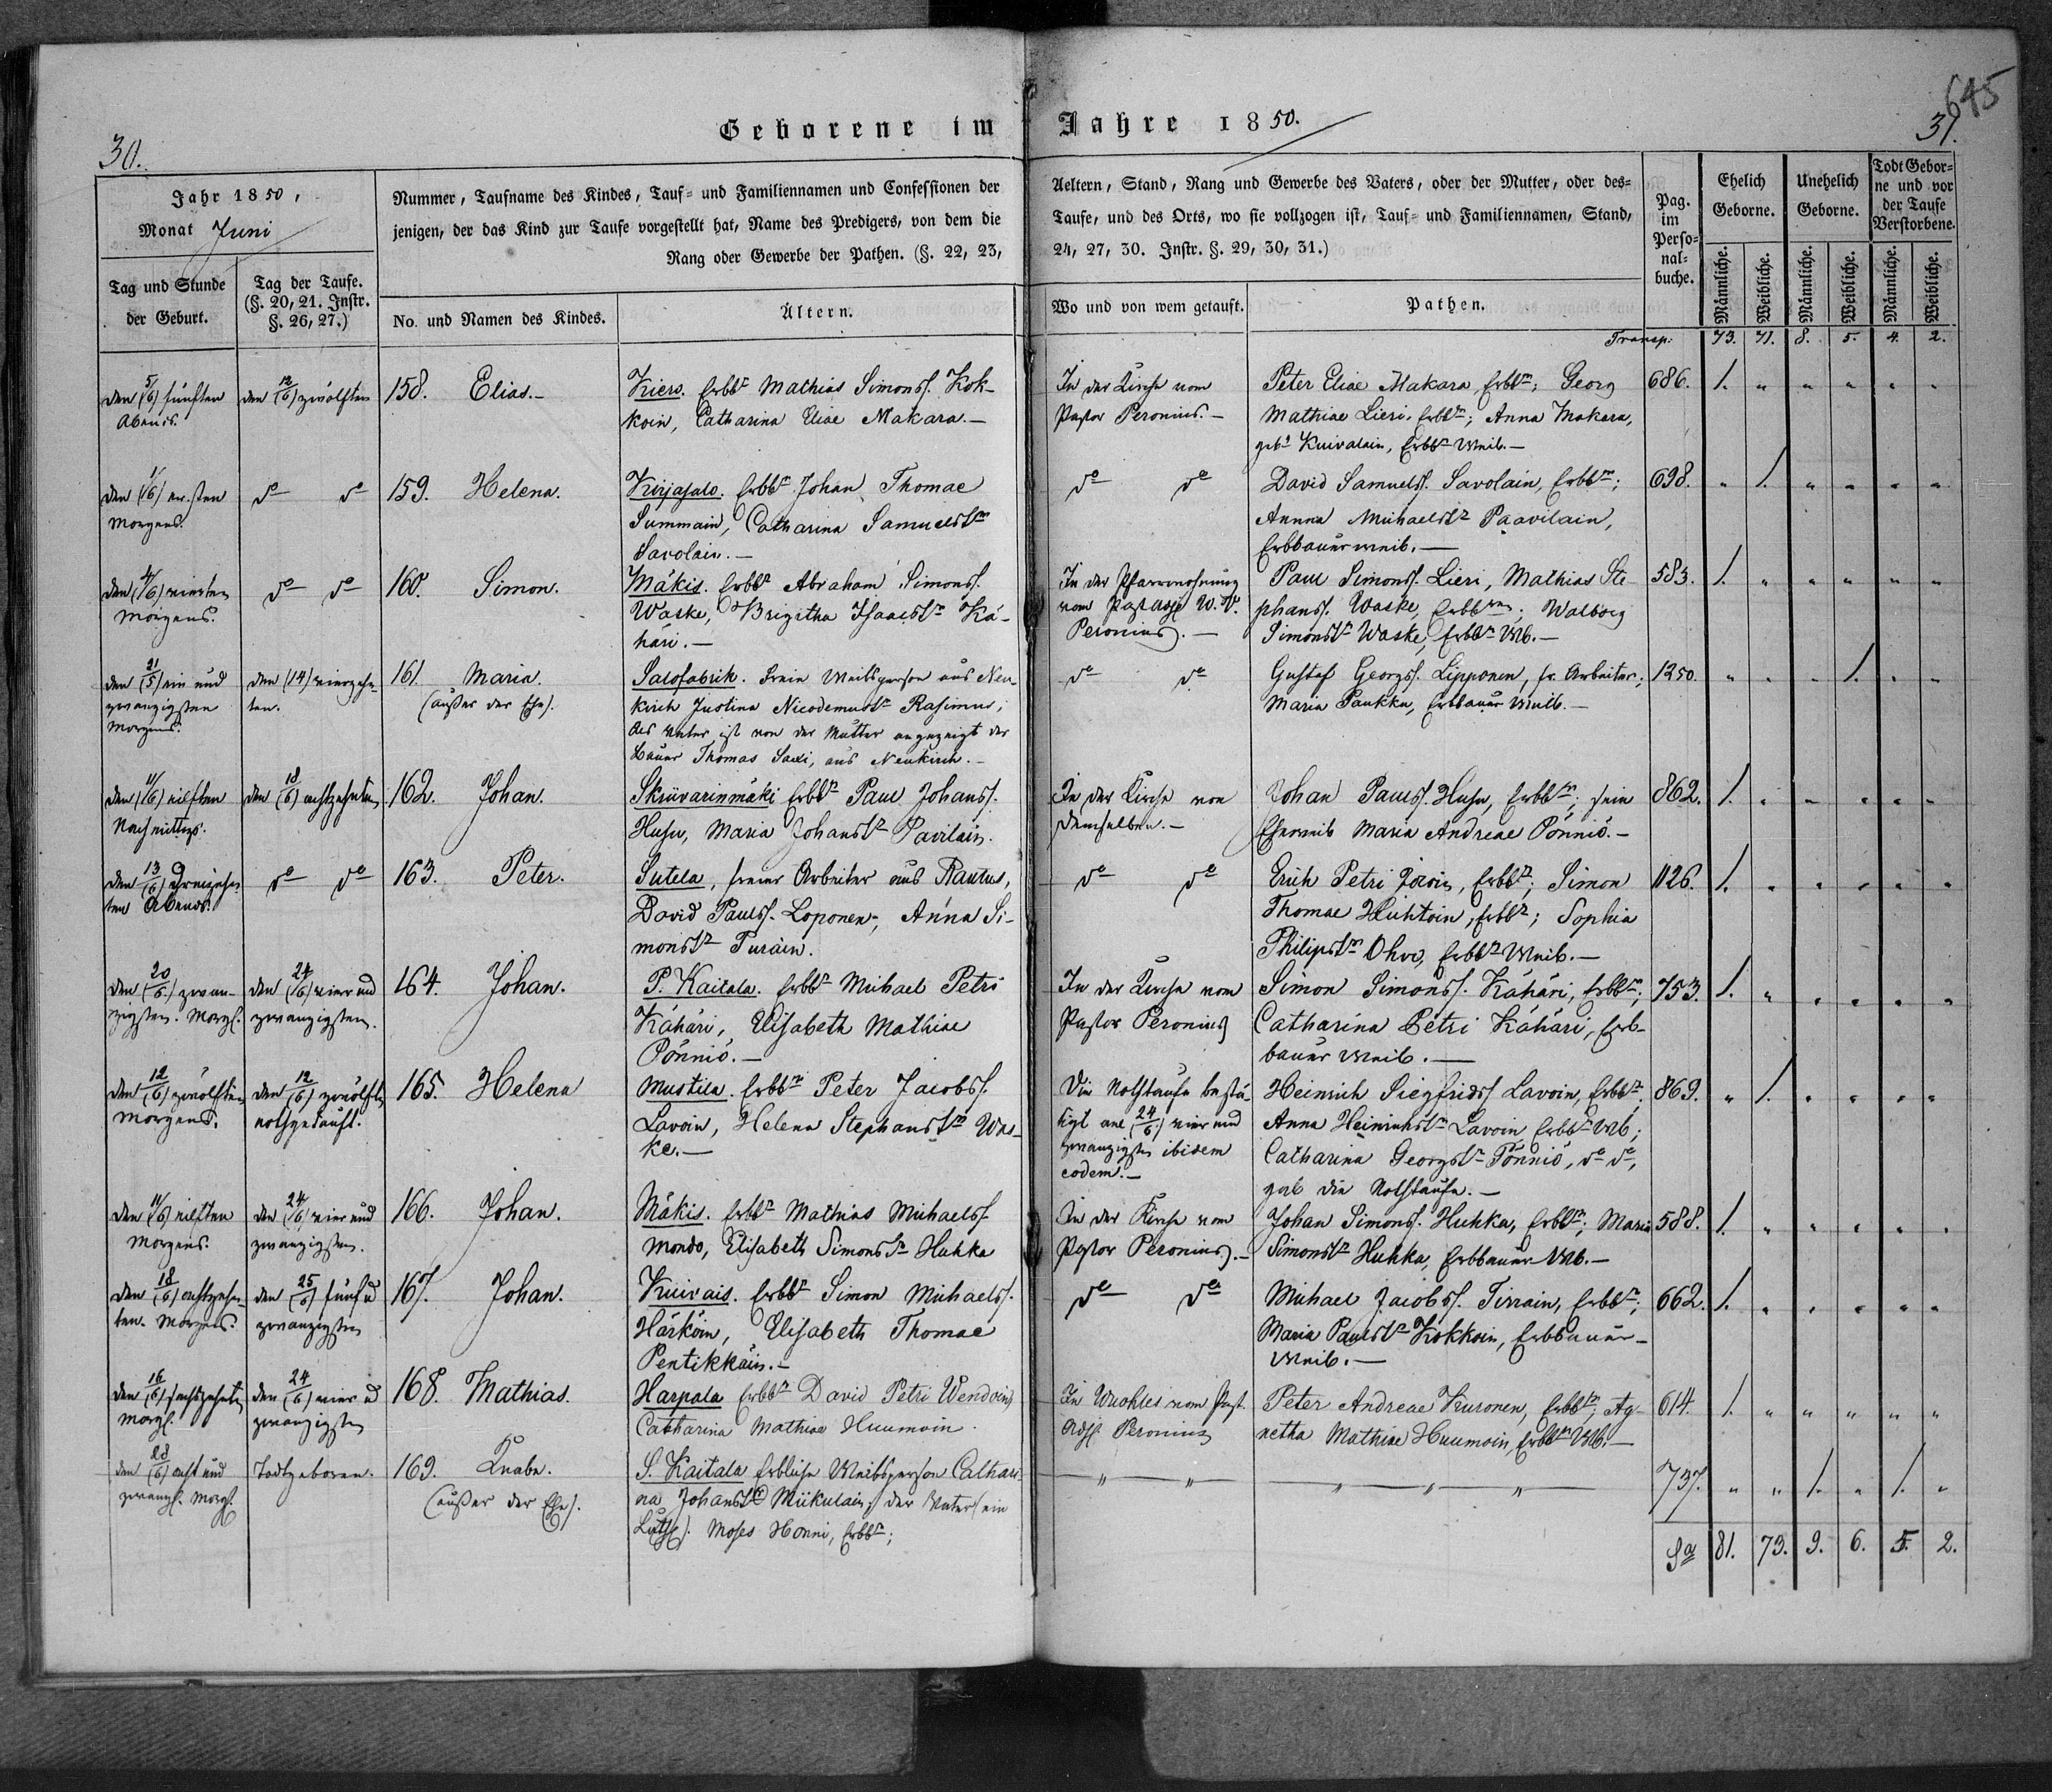 645
Geborene im Jahre 1850.
30.
31.
Jahr 1850,
Monat Juni
Nummer, Taufname des Kindes, Tauf- und Familiennamen und Confessionen der
jenigen, der das Kind zur Taufe vorgestellt hat, Name des Predigers, von dem die
Rang oder Gewerbe der Pathen. (§. 22, 23,
Aeltern, Stand, Rang und Gewerbe des Vaters, oder der Mutter, oder des-
Taufe, und des Orts, wo sie vollzogen ist, Tauf- und Familiennamen, Stand,
24, 27, 30. Instr. §. 29, 30, 31.)
Pag.
im
Perso-
nal-
buche.
Ehelich
Geborne.
Unehelich
Geborne.
Todt Gebor-
ne und vor
der Taufe
Verstorbene.
Tag und Stunde
der Geburt.
Tag der Taufe.
(§. 20, 21. Instr.
§. 26, 27.)
No. und Namen des Kindes.
Ältern.
Wo und von wem getauft.
Pathen.
Männliche.
Weibliche.
Männliche.
Weibliche.
Männliche.
Weibliche.
Transp. 73. 71. 8. 5. 4. 2.
den (5/6) fünften
Abends.
den (12/6) zwölften
158. Elias.-
Kiero. Erbbr Mathias Simonss. Kok-
koin, Catharina Eliae Makara.-
In der Kirche vom
Pastor Peronius.-
Peter Eliae Makara Erbbr; Georg
Mathiae Lieri, Erbbr; Anna Makara,
geb. Kuivalain, Erbbr Weib.-
686. 1. " " " " "
den (1/6) ersten
Morgens.
do do
159. Helena.
Kirjasalo. Erbbr Johan Thomae
Summain, Catharina Samuelstr
Savolain.-
do do
David Samuelss. Savolain, Erbbr;
Annna Michaelstr Paavilain,
Erbbauerweib.-
698. " 1. " " " "
den (4/6) vierten
Morgens.
do do
160. Simon.
Mäkis. Erbbr Abraham Simonss.
Waske, Brigitha Isaacstr Kä-
häri.-
In der Pfarrwohnung
vom Past. Adj. W. V.
Peronius.-
Paul Simonss. Lieri, Mathias Ste-
phanss. Waske, Erbbr; Walborg
Simonstr Waske, Erbbr Wb.-
583. 1. " " " " "
den (21/5) ein und
zwanzigsten
Morgens.
den (14) vierzehn-
ten.
161. Maria.
(außer der Ehe).
Salofabrik. Freie Weibsperson aus Neu-
kirch Justina Nicodemustr Rasimus;
als Vater ist von der Mutter angezeigt der
Bauer Thomas Saxi, aus Neukirch.-
do do
Gustaf Georgss. Lipponen, fr. Arbeiter;
Maria Paukku, Erbbauer Weib.-
1250. " " " 1. " "
den (11/6) eilften
Nachmittags.
den (18/6) achtzehnten
162. Johan.
Skrüvarinmäki Erbbr Paul Johanss.
Husu, Maria Johanstr Pavilain.
In der Kirche von
demselben.-
Johan Paulss. Husu, Erbbr; sein
Eheweib Maria Andreae Pönniö.-
862. 1. " " " " "
den (13/6) dreizehn-
ten Abends.
do do
163. Peter.
Sutela, freier Arbeiter aus Rautus,
David Paulss. Loponen; Anna Si-
monstr Turain.
do do
Erich Petri, Erbbr; Simon
Thomae Hiuhtoin, Erbbr; Sophia
Philipstr Ohvo, Erbbr Weib.-
1126. 1. " " " " "
den (20/6) zwan-
zigsten. Morgs.
den (24/6) vier und
zwanzigsten.
164. Johan.
P. Kaitala. Erbbr Michael Petri
Kähäri, Elisabeth Mathiae
Pönniö.-
In der Kirche vom
Pastor Peronius
Simon Simonss. Kähäri, Erbbr;
Catharina Petri Kähäri, Erb-
bauer Weib.-
753. 1. " " " " "
den (12/6) zwölften
Morgens.
den (12/6) zwölften
nothgetauft.
165. Helena
Mustila. Erbbr Peter Jacobss.
Lavoin, Helena Stephanstr Was-
ke.-
Die Nothtaufe bestä-
tigt am (24/6) vier und
zwanzigsten ibidem
eodem.-
Heinrich Siegfridss. Lavoin, Erbbr;
Anna Heinrichstr Lavoin Erbbr Wb;
Catharina Georgstr Pönniö, do do,
gab die Nothtaufe.-
869. " 1. " " " "
den (11/6) eilften
Morgens.
den (24/6) vier und
zwanzigsten.
166. Johan.
Mäkis. Erbbr Mathias Michaelss.
Mondo, Elisabeth Simonstr Huhka
In der Kirche vom
Pastor Peronius.-
Johan Simonss. Huhka, Erbbr; Maria
Simonstr Huhka, Erbbauer Wb.-
588. 1. " " " " "
den (18/6) achtzehn-
ten. Morgens.
den (25/6) fünf u
zwanzigsten
167. Johan.
Kuivais. Erbbr Simon Michaelss.
Härköin, Elisabeth Thomae
Pentikkäin.-
do do
Michael Jacobss. Tirrain, Erbbr;
Maria Paulstr Kokkoin, Erbbauer-
Weib.-
662. 1. " " " " "
den (16/6) sechszehnten
Morgs.
den (24/6) vier u
zwanzigsten
168. Mathias.
Harpala Erbbr David Petri Wendoin,
Catharina Mathiae Huumoin.
In Wuohles vom Past.
Adj. Peronius
Peter Andreae Kuronen, Erbbr; Ag-
netha Mathiae Huumoin, Erbbr Wb.-
614. 1. " " " " "
den (28/6) acht und
zwanzs. Morgs.
Todtgeboren.
169. Knabe.
(außer der Ehe).
S. Kaitala Erbliche Weibsperson Cathari-
na Johanstr Miikulain; der Vater (ein
Luthr). Moses Honni, Erbbr;
" " " " "
737. " " 1. " 1. "
Sa 81. 73. 9. 6. 5. 2.